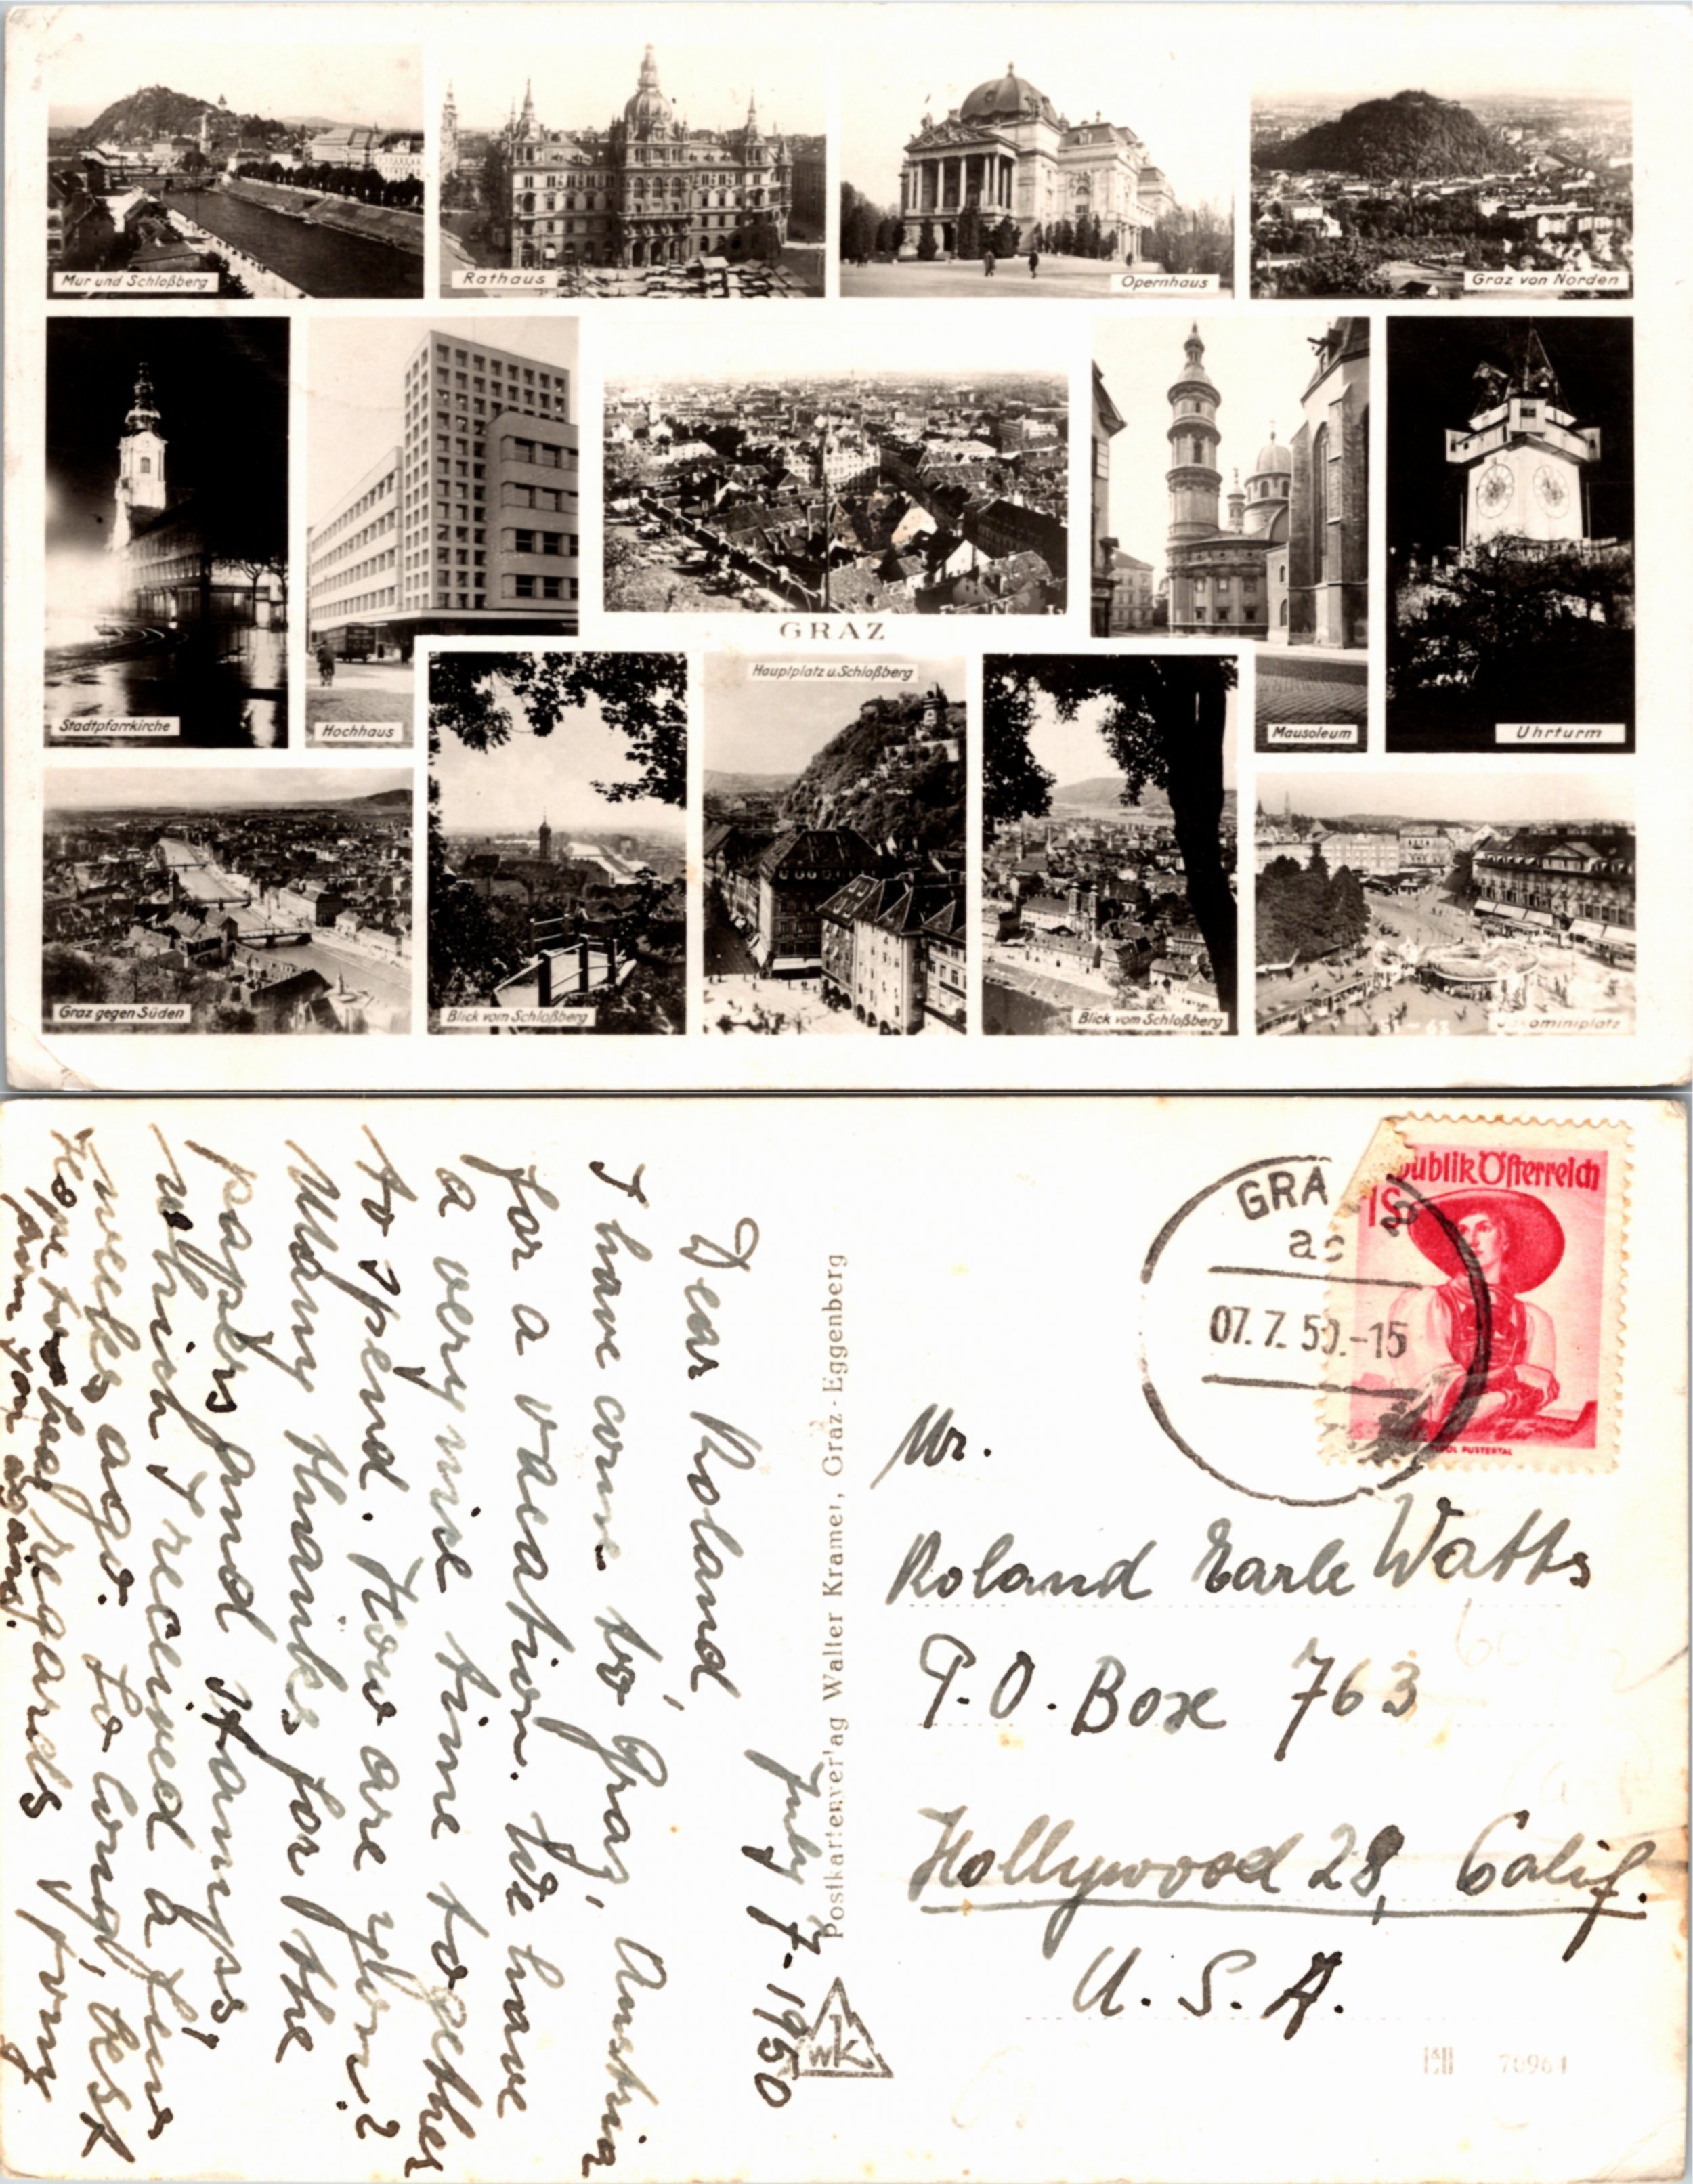 Mur und Schloßberg
Rathaus
Opernhaus
Graz von Norden
Stadtpfarrkirche
Hochhaus
GRAZ
Mausoleum
Uhrturm
Graz gegen Süden
Blick vom Schloßberg
Hauptplatz u. Schloßberg
Blick vom Schloßberg
ominiplatz
July 7-1950
Dear Roland,
I have come to Graz, Austria
for a vacation. We have
a very nice time together
to spend. How are you?
Many thanks for the
papers and stamps,
which I received a few
weeks ago. So long, best
regards from
from you again.
Postkartenverlag Walter Kramer, Graz-Eggenberg
WK
GRA
07.7.50.-15
publik Österreich
1S
PUSTERTAL
Mr.
Roland Earle Watts
P.O. Box 763
Hollywood 28, Calif.
U.S.A.
70964